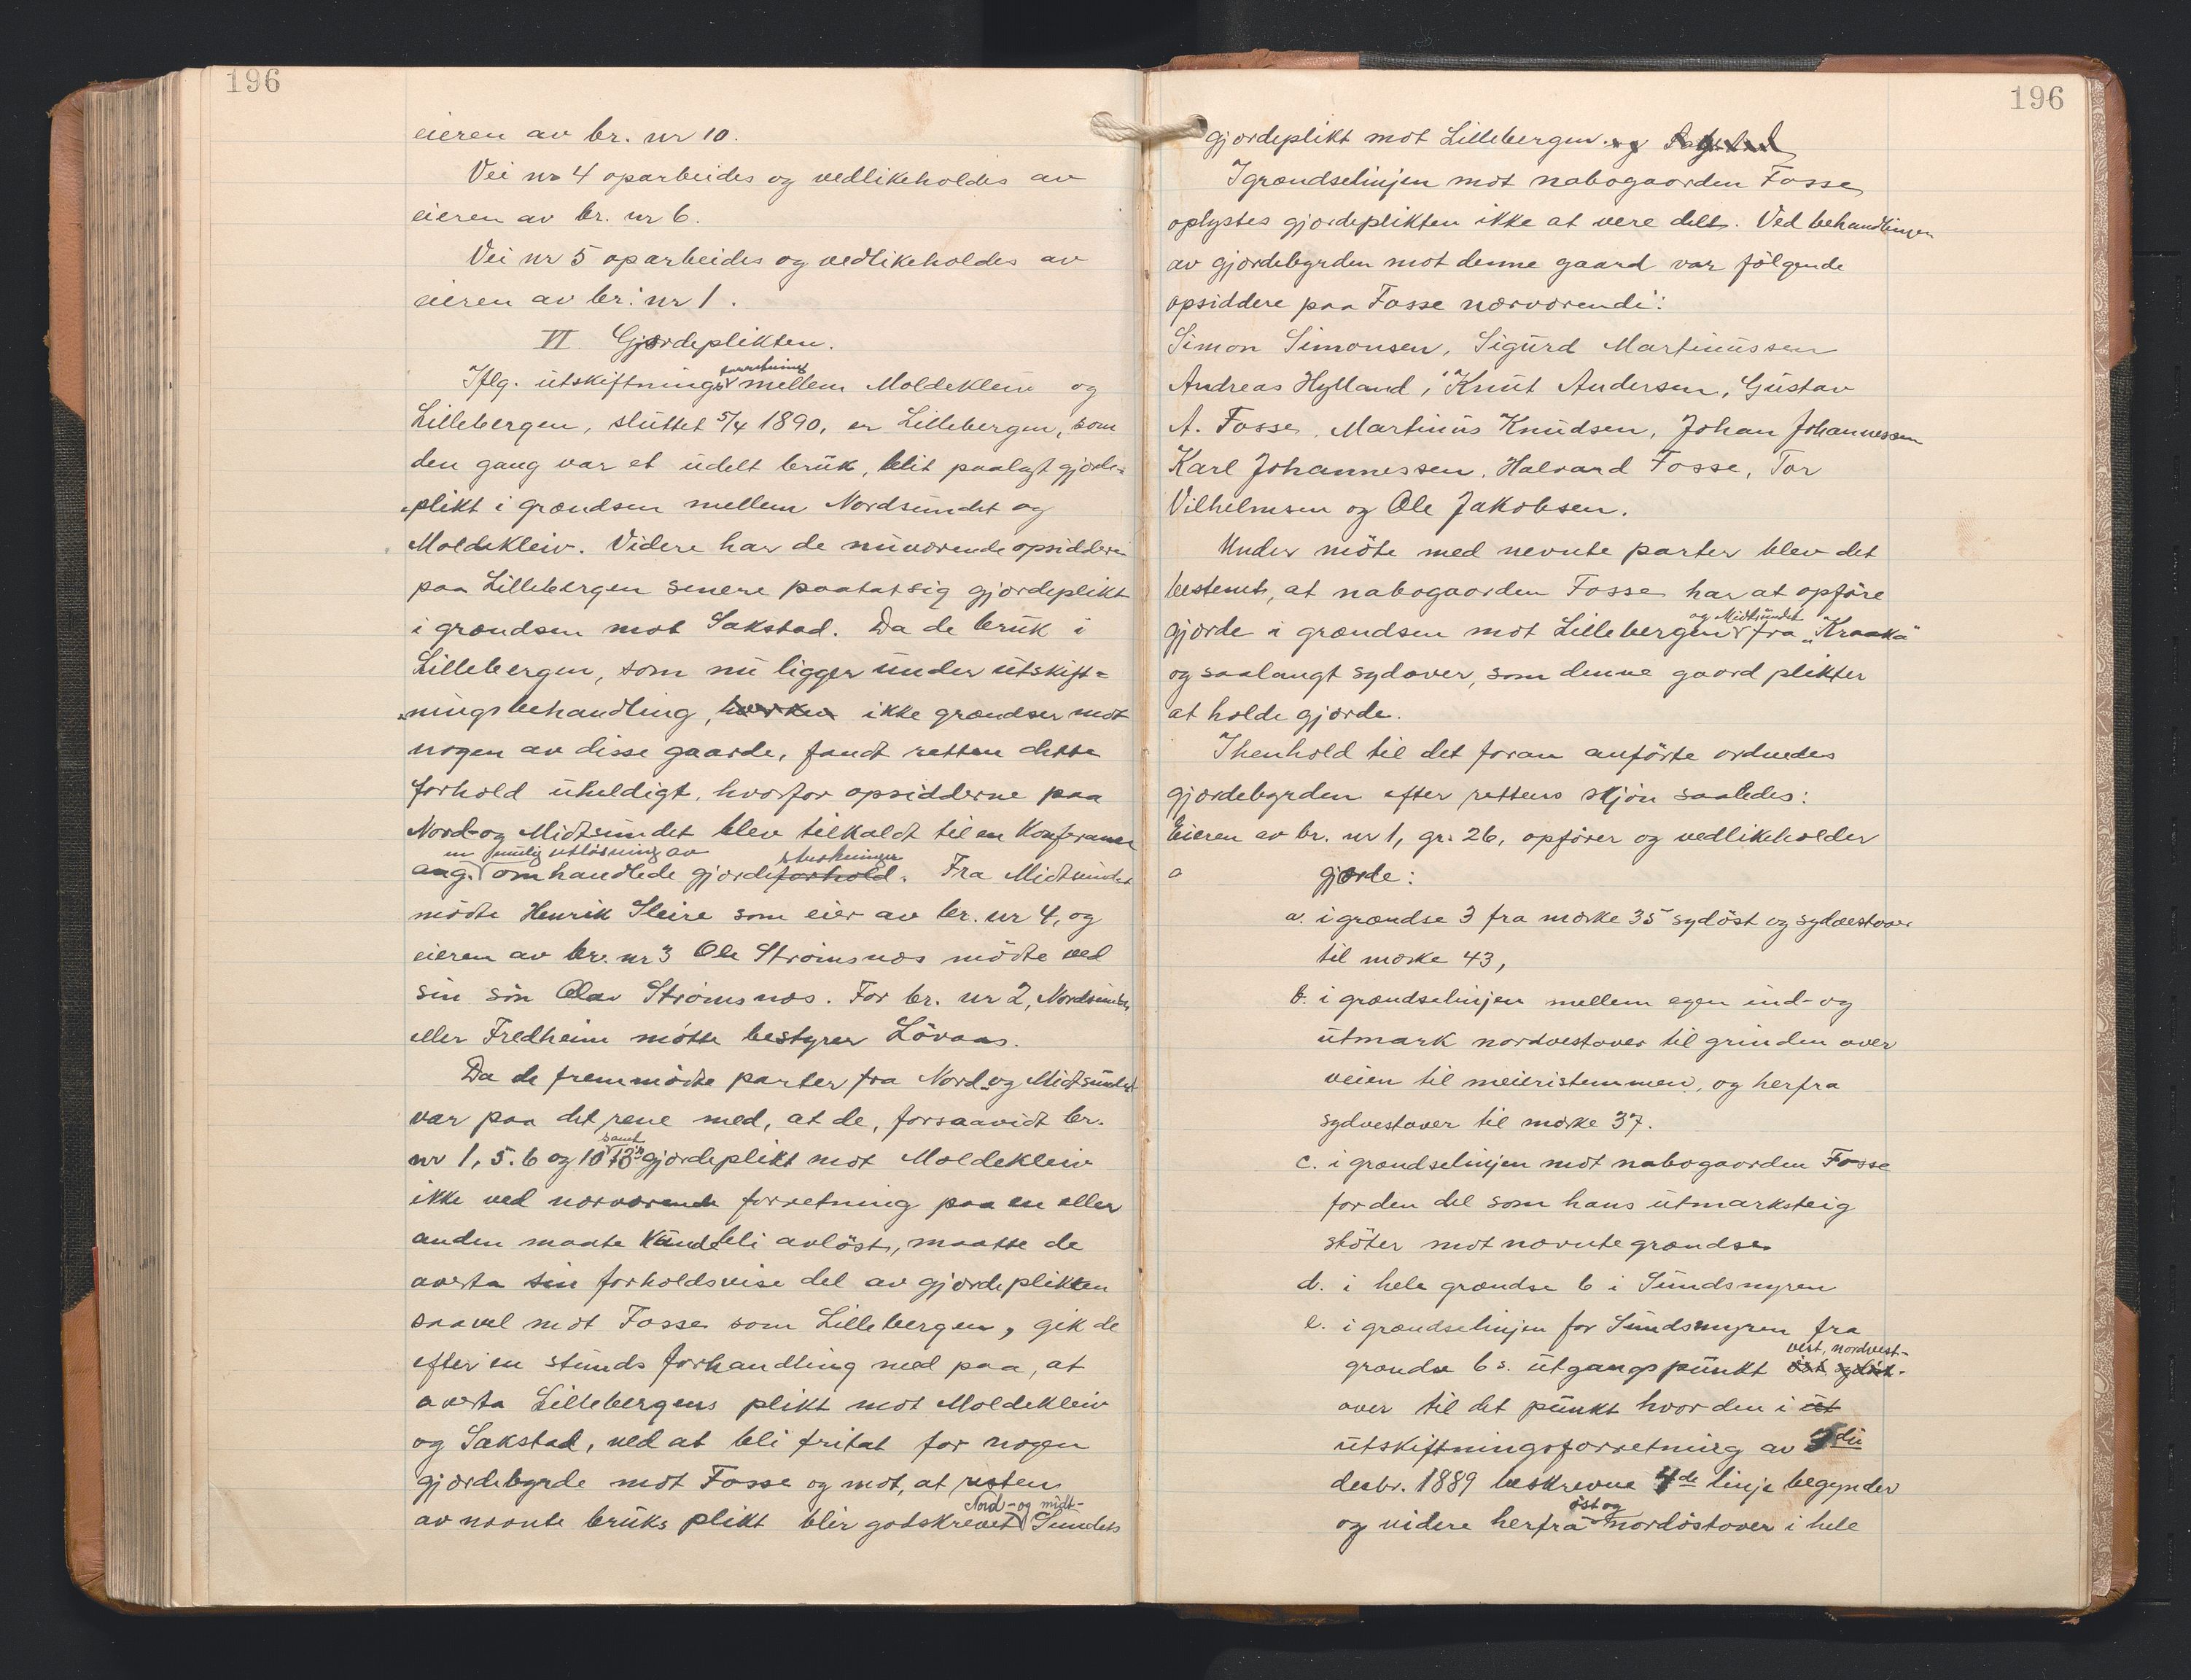 196
eieren av br. nr 10.
Vei nr 4 oparbeides og vedlikeholdes av
eieren av br. nr 6.
Vei nr 5 oparbeides og vedlikeholdes av
eieren av br. nr 1.
VI Gjærdeplikten.
forretning
Iflg. utskiftnings mellem Moldekleiv og
Lillebergen, sluttet 5/4 1890, er Lillebergen, som
den gang var et udelt bruk, blit paalagt gjærde-
plikt i grændsen mellem Nordsundet og
Moldekleiv. Videre har de nuværende opsiddere
paa Lillebergen senere paatat sig gjærdeplikt
i grændsen mot Sakstad. Da de bruk i
Lillebergen, som nu ligger under utskift=
ningsbehandling, hverken ikke grændser mot
nogen av disse gaarde, fandt retten dette
forhold uheldigt, hvorfor opsidderne paa
Nord- og Midtsundet blev tilkaldt til en Konferanse
en mulig utløsning av strekninger
ang. omhandlede gjærdeforhold. Fra Midtsundet
mødte Henrik Steire som eier av br. nr 4, og
eieren av br. nr 3 Ole Strømsnæs mødte ved
sin søn Olav Strømsnæs. For br. nr 2, Nordsundet
eller Fredheim møtte bestyrer Lövaas.
Da de fremmødte parter fra Nord- og Midtsundet
var paa det rene med, at de, forsaavidt br.
samt
nr 1, 5. 6 og 10 13's gjærdeplikt mot Moldekleiv
ikke ved nærværende forretning paa en eller
anden maate kunde bli avløst, maatte de
averta sin forholdsvise del av gjærdeplikten
saavel mot Fosse som Lillebergen, gik de
efter en stunds forhandling med paa, at
averta Lillebergens plikt mot Moldekleiv
og Sakstad, ved at bli fritat for nogen
gjærdebyrde mot Fosse og mot, at resten
Nord- og midt-
av nævnte bruks plikt blir godskrevet Sundets
196
gjærdeplikt mot Lillebergen. og Sakstad
I grændselinjen mot nabogaarden Fosse
oplystes gjærdeplikten ikke at være delt. Ved behandlingen
av gjærdebyrden mot denne gaard var følgende
opsiddere paa Fosse nærværende:
Simon Simonsen, Sigurd Martinussen
Andreas Hylland, Knut Andersen, Gustav
A. Fosse, Martinus Knudsen, Johan Johannessen
Karl Johannessen, Halvard Fosse, Tor
Vilhelmsen og Ole Jakobsen.
Under møte med nevnte parter blev det
bestemt, at nabogaarden Fosse har at opføre
og Midtsundet
gjærde i grændsen mot Lillebergen fra "Kraaka"
og saalangt sydover, som denne gaard plikter
at holde gjærde.
I henhold til det foran anførte ordnedes
gjærdebyrden efter rettens skjøn saaledes:
Eieren av br. nr 1, gr. 26, opfører og vedlikeholder
a gjærde:
a. i grændse 3 fra mærke 35 sydöst og sydvestover
til mærke 43,
b. i grændselinjen mellem egen ind- og
utmark nordvestover til grinden over
veien til meieristemmen, og herfra
sydvestover til mærke 37.
c. i grændselinjen mot nabogaarden Fosse
for den del som hans utmarksteig
støter mot nævnte grændse
d. i hele grændse 6 i Sundsmyren
e. i grændselinjen for Sundsmyren fra
vest, nordvest-
grændse 6s. utgangspunkt öst sydöst-
over til det punkt hvor den i ut
utskiftningsforretning av 5di
desbr. 1889 beskrevne 4de linje begynder
öst og
og videre herfra nordöstover i hele